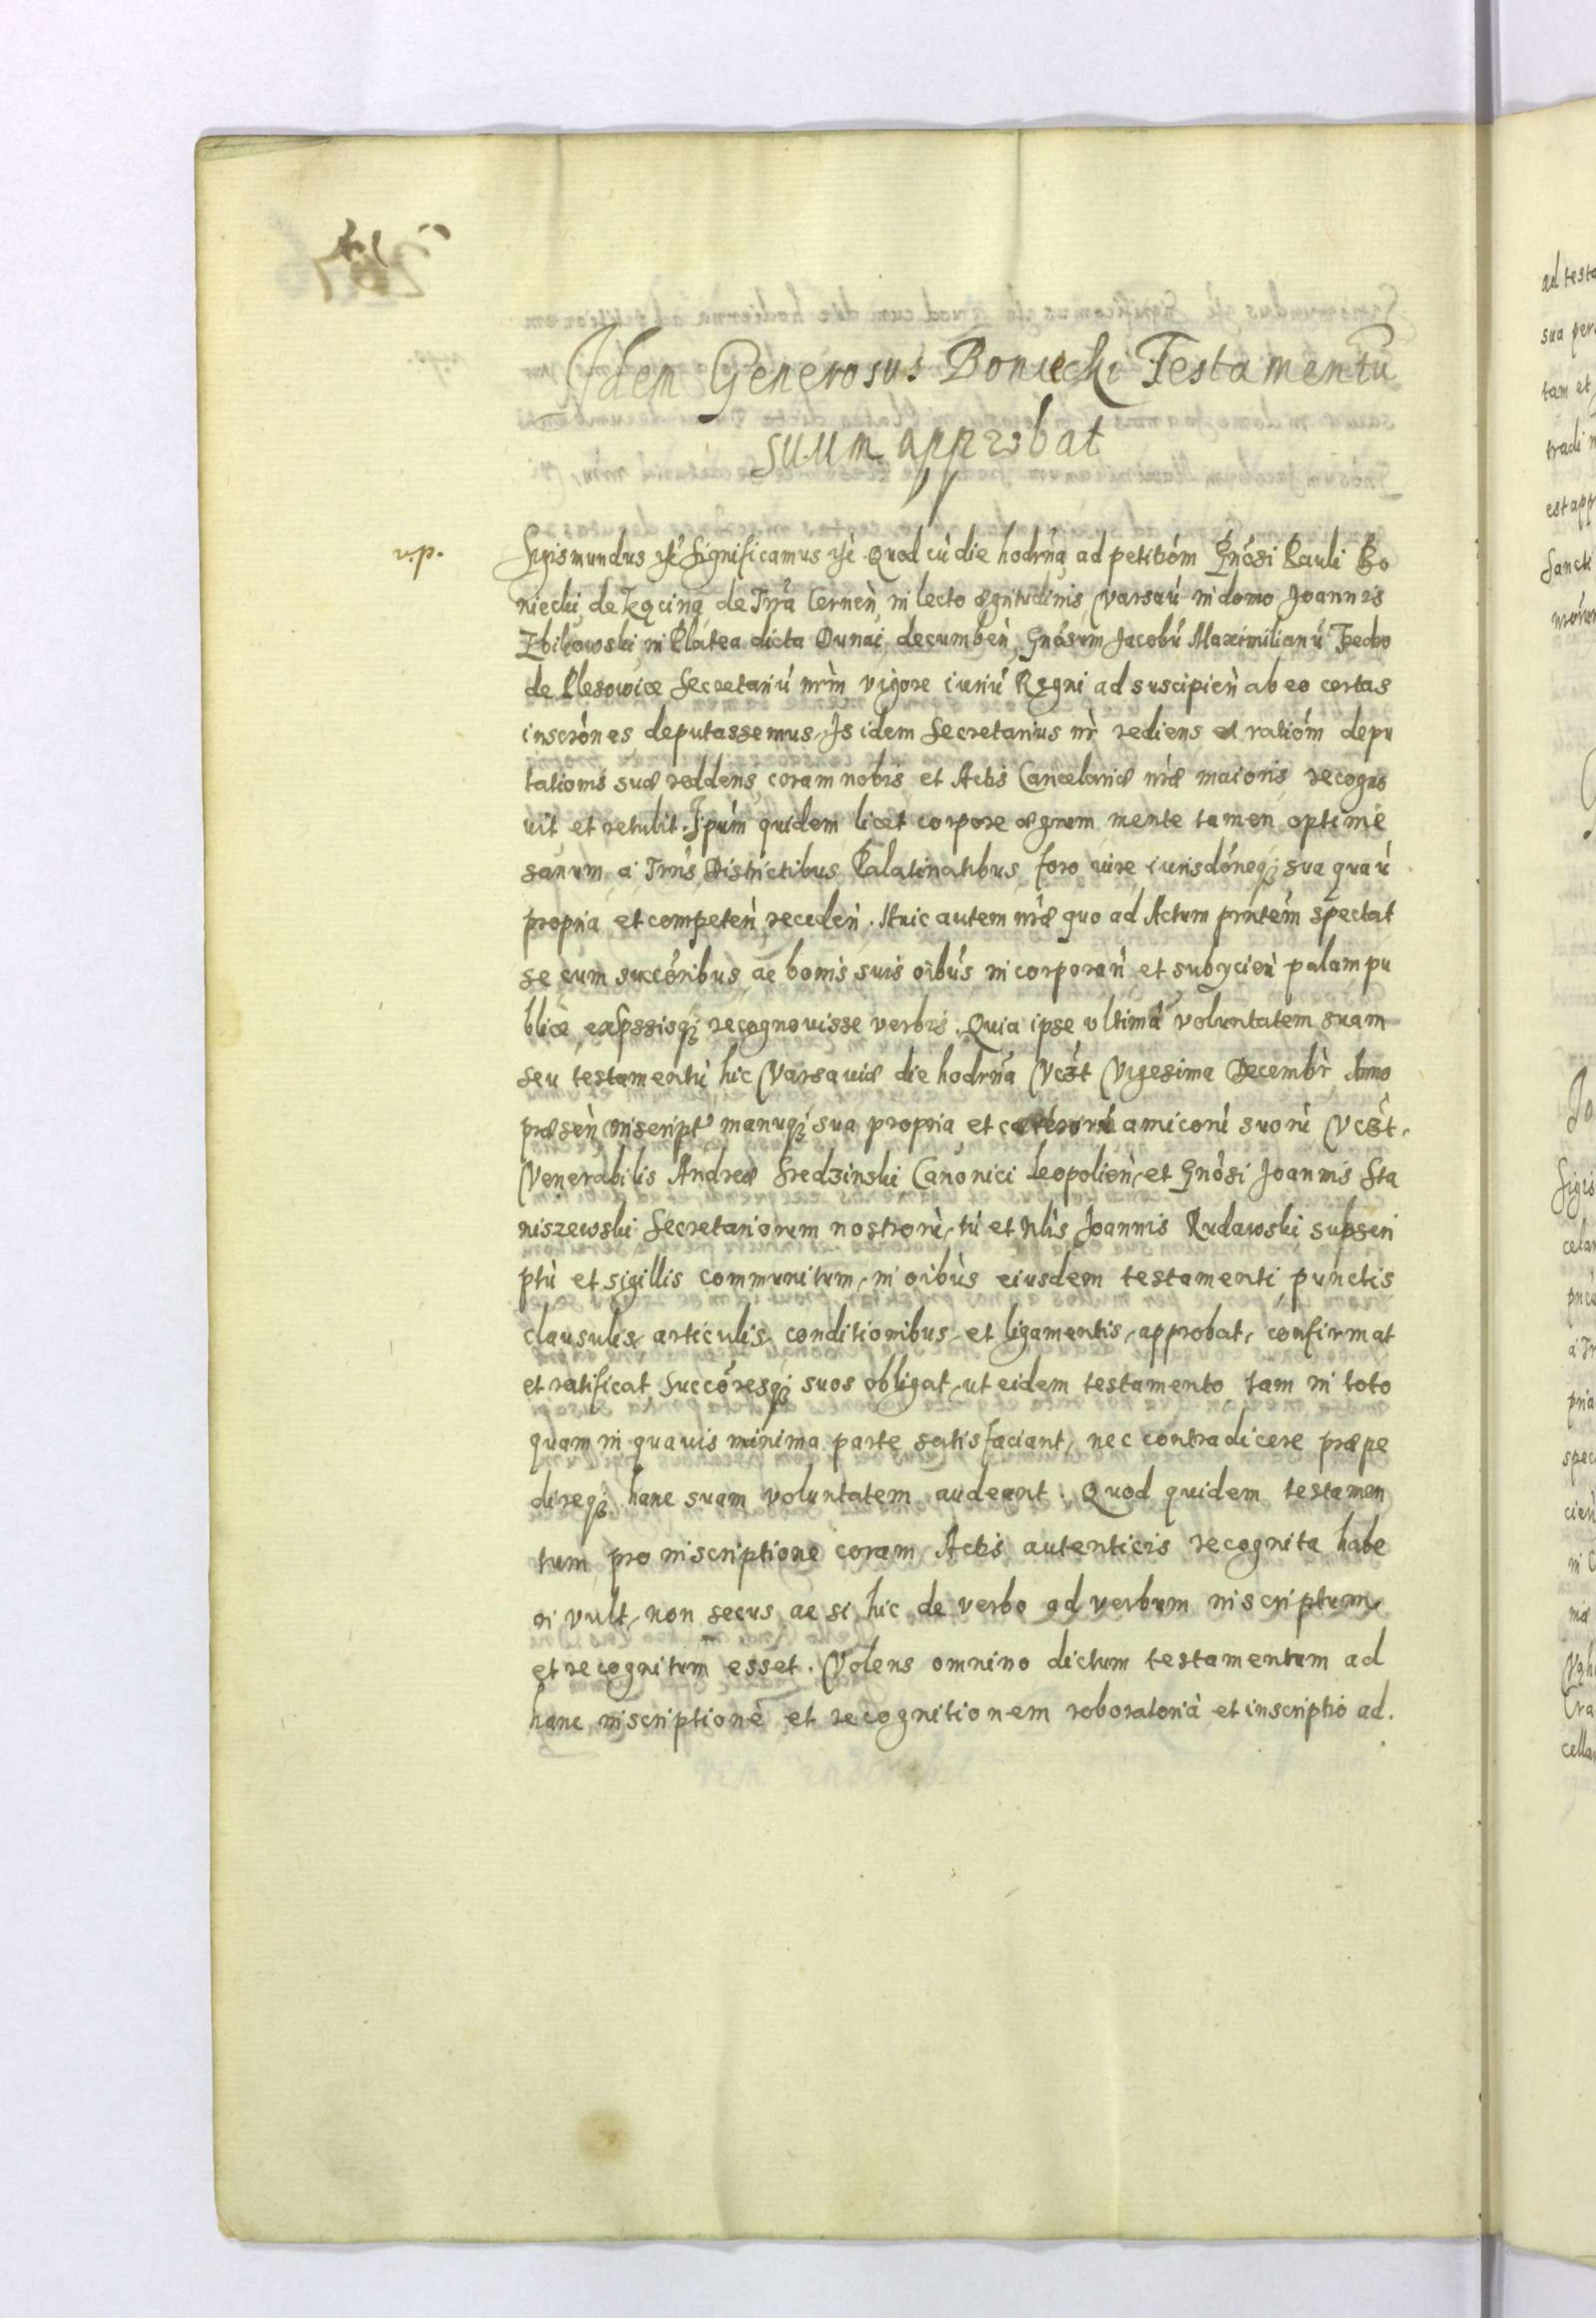 Idem Generosus Boniecki Testamentũ
suum approbat
v.p.
Sigismundus etc̀ Significamus etc̀. Quod cù die hodrńa ad petitióm Gnósi Pauli Bo
niecki de Tęcina de Trrã Cernen̈ in lecto ægritudinis Varsaú in domo Joannis
Zbikowski in Platea dicta Dunai decumbeǹ, Gnósum Jacobú Maximilianú Fredro
de Plesowice Secretariú nrm̀ vigore iuriú Regni ad suscipieǹ ab eo certas
inscrón es deputassemus. Is idem Secretarius nr̀ rediens et ratióm depu
tationis suæ reddens, coram nobis et Actis Cancelariæ nrǽ maioris recogno
uit et retulit. Ipúm quidem licet corpore ægrum mente tamen optime
sanum a Trrís Districtibus Palatinatibus foro iure iurisdóneq; sua quaú
propria et competeǹ recedeǹ. Huic autem nrǽ quo ad Actum pntém spectat
se cum succóribus ac bonis suis oib́us incorporaǹ et subycieǹ palam pu
blicè expssisq; recognouisse verbis. Quia ipse ultimã voluntatem suam
seu testamentù hic Varsauiæ die hodrńa Vczt́ Vigesima Decembr̀ Anno
præseǹ inscript manuq; sua propria et cæterorú amicorú suorú Vczt́.
Venerabilis Andreæ Sredzinski Canonici Leopolieǹ et Gnósi Joannis Sta
niszewski Secretariorum nostrorù, tú et Nlis̀ Joannis Rudawski subscri
ptù et sigillis communitum, in oib̀us eiusdem testamenti punctis
clausulis articulis conditionibus et ligamentis, approbat, confirmat
et ratificat Succóresq; suos obligat, ut eidem testamento tam in toto
quam in quauis minima parte satisfaciant, nec contradicere præpe
direq; hanc suam voluntatem audeant. Quod quidem testamen
tum pro inscriptione coram Actis autenticis recognita habe
ri vult, non secus ac si hic de verbo ad verbum inscriptum,
et recognitum esset. Volens omnino dictum testamentum ad
hanc inscriptionè et recognitionem roboratorià et inscriptio ad.